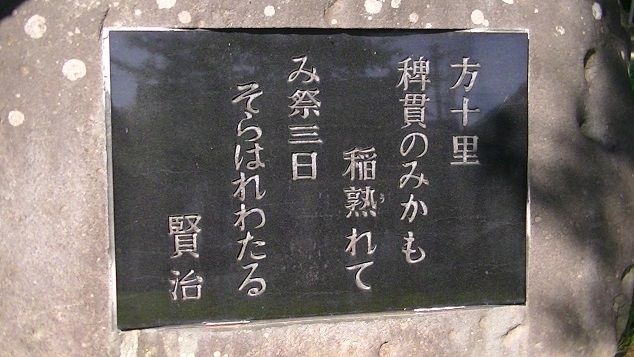 方十里
稗貫のみかも
稲熟れて
み祭三日
そらはれわたる
賢治